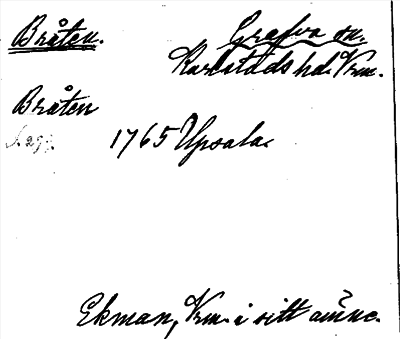 Bråten.
Grafva sn.
Karlstads hd. Vrm.
Bråten
1765 Upsala.
Ekman, Vrm. i sitt ämne.